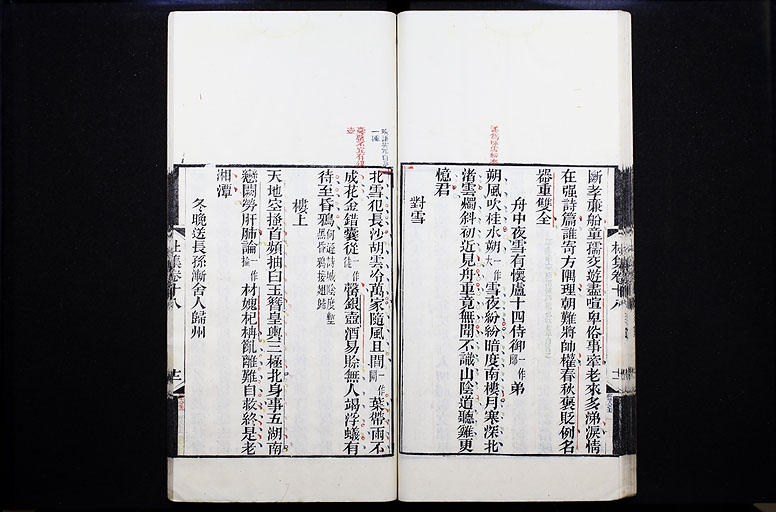 斷孝廉船童孺交遊盡喧卑俗事牽老來多涕淚情
在强詩篇誰寄方隅理朝難將帥權春秋褒貶例名
器重雙全
舟中夜雪有懷盧十四侍御一作郎弟
朔風吹桂水朔一作大雪夜紛紛暗度南樓月寒深北
渚雲燭斜初近見舟重竟無聞不識山陰道聽雞更
憶君
對雪
北雪犯長沙胡雲冷萬家隨風且間一作開葉帶雨不
成花金錯囊從一作徒罄銀壺酒易賒無人竭浮蟻有
待至昏鴉何遜詩城陰度塹黑昏鴉接翅歸
樓上
天地空搔首頻抽白玉簪皇輿三極北身事五湖南
戀闕勞肝肺論一作掄材愧杞柟亂離難自救終是老
湘潭
冬晚送長孫漸舍人歸州
杜集卷十八